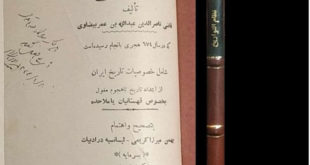 تألیف
قاضی ناصرالدین عبدالله بن عمر بیضاوی
که در سال ۶۷۴ هجری بانجام رسیده است
شامل خصوصیات تاریخ ایران
از ابتداء تاریخ تا هجوم مغول
بخصوص قهستانیان یا ملاحده
بتصحیح و اهتمام
بهمن میرزا کریمی - لیسانسیه در ادبیات
بسرمایه
نظام التواریخ